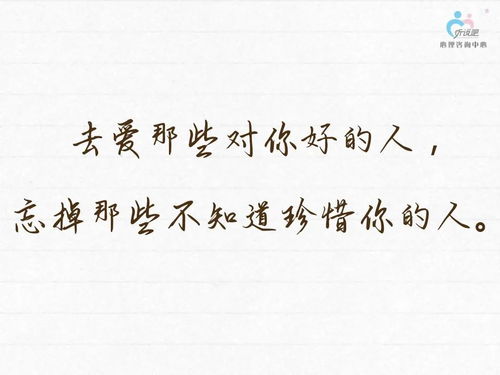 听说吧
心理咨询中心
去爱那些对你好的人，
忘掉那些不知道珍惜你的人。